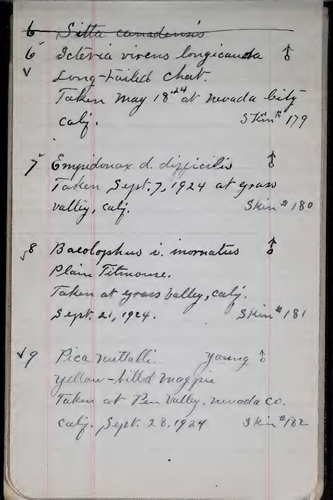 6 Sitta canadensis
6 Icteria virens longicauda ♂
v Long-tailed chat.
Taken May 18-24 at nevada city
calif. Skin # 179
7 Empidonax d. difficilis ♂
Taken Sept. 7, 1924 at grass
valley, calif. Skin # 180
8 Baeolophus i. inornatus ♂
Plain Titmouse.
Taken at grass valley, calif.
Sept. 21, 1924. Skin # 181
v 9 Pica nuttalli young ♂
yellow-billed magpie
Taken at Pen Valley, nevada co.
calif. Sept. 28, 1924 Skin # 182